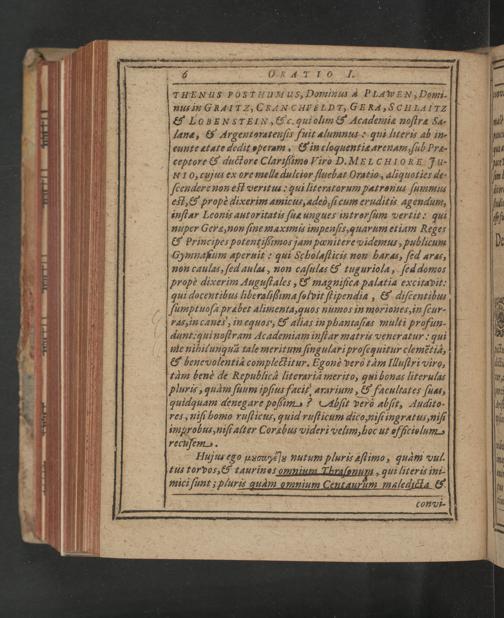 6 ORATIO I.
THENUS POSTHUMUS, Dominus à PLAWEN, Domi-
nus in GRAITZ, CRANCHFELDT, GERA, SCHLAITZ
& LOBENSTEIN, &c. qui olim & Academiæ nostræ Sa-
lanæ, & Argentoratensis fuit alumnus: qui literis ab in-
eunte ætate dedit operam, & in eloquentiæ arenam, sub Præ-
ceptore & ductore Clarissimo Viro D. MELCHIORE JU-
NIO, cujus ex ore melle dulcior fluebat Oratio, aliquoties de-
scendere non est veritus: qui literatorum patronus summus
est, & propè dixerim amicus, adeò, si cum eruditis agendum,
instar Leonis autoritatis suæ ungues introrsum vertit: qui
nuper Geræ, non sine maximis impensis, quarum etiam Reges
& Principes potentissimos jam pœnitere videmus, publicum
Gymnasium aperuit: qui Scholasticis non haras, sed aras,
non caulas, sed aulas, non casulas & tuguriola, sed domos
propè dixerim Augustales, & magnifica palatia excitavit:
qui docentibus liberalissima solvit stipendia, & discentibus
sumptuosa præbet alimenta, quos numos in moriones, in scur-
ras, in canes, in equos, & alias in phantasias multi profun-
dunt: qui nostram Academiam instar matris veneratur: qui
me nihil unquã tale meritum singulari prosequitur clemẽtiâ,
& benevolentiâ complectitur. Egonè verò tàm Illustri viro,
tàm benè de Republicâ literariâ merito, qui bonas literulas
pluris, quàm suum ipsius facit ærarium, & facultates suas,
quidquam denegare possim? Absit verò absit, Audito-
res, nisi homo rusticus, quid rustico dico, nisi ingratus, nisi
improbus, nisi alter Corœbus videri velim, hoc ut officiolum
recusem.
Hujus ego nutum pluris æstimo, quàm vul-
tus torvos, & taurinos omnium Thrasonum, qui literis ini-
mici sunt; pluris quàm omnium Centaurûm maledicta &
convi-